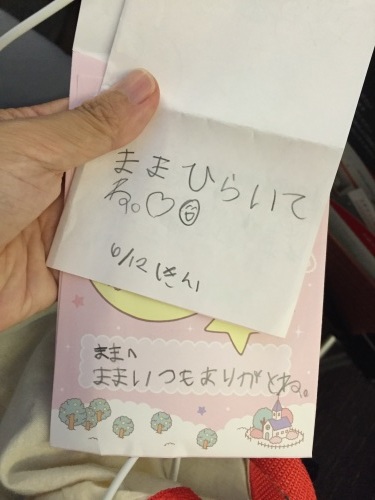 ままひらいて
ね。♡
6/12(きん)
ままへ
ままいつもありがとね。